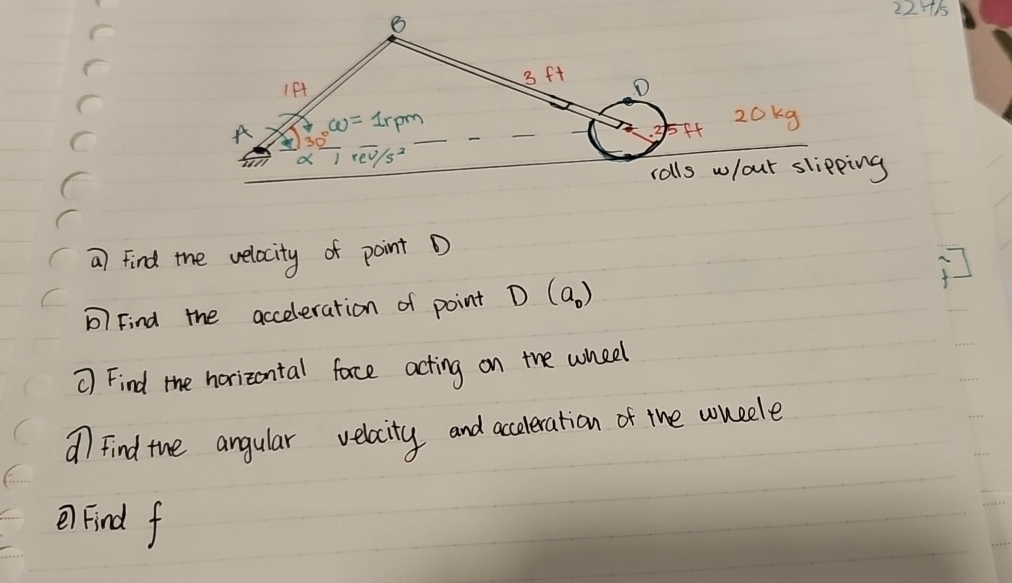 22 ft/s
B
1ft
3 ft
D
A
ω = 1rpm
30°
.25 ft
20 kg
α 1 rev/s²
rolls w/out slipping
a) Find the velocity of point D
b) Find the acceleration of point D (a_D)
c) Find the horizontal force acting on the wheel
d) Find the angular velocity and acceleration of the wheele
e) Find f